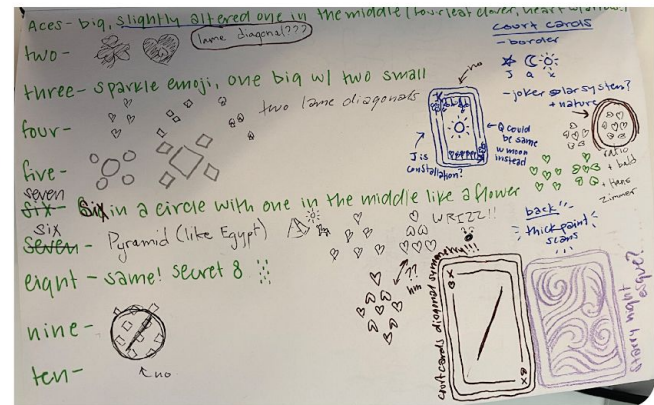 Aces - big, slightly altered one in the middle (four leaf clover, heart w/
two -
lame diagonal???
three - sparkle emoji, one big w/ two small
two lame diagonals
four -
five -
seven
six - six in a circle with one in the middle like a flower
six
seven - Pyramid (like Egypt)
WREZZ!!
eight - same! secret 8
??
hm
nine -
no
ten -
court cards
- border
J Q K
- joker solar system?
+ nature
no
J is constellation?
Q could be same w moon instead
ratio
+ bald
+ Hans Zimmer
back
thick paint scans
court cards diagonal symmetry!!!
starry night esque?